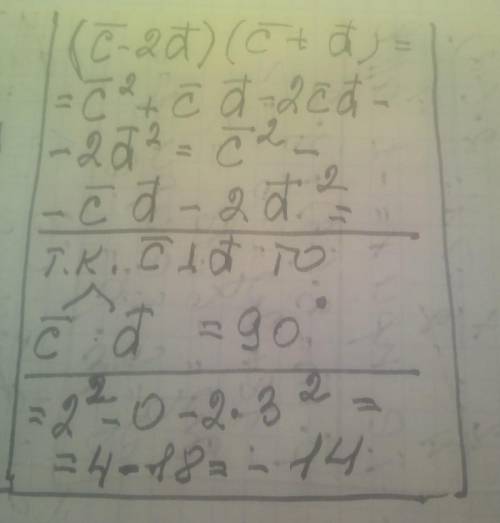 (c̄ - 2d̄)(c̄ + d̄) =
= c̄² + c̄ d̄ - 2c̄d̄ -
- 2d̄² = c̄² -
- c̄ d̄ - 2d̄² =
т.к. c̄ ⊥ d̄ то
c̄ ^ d̄ = 90°
= 2² - 0 - 2·3² =
= 4 - 18 = - 14